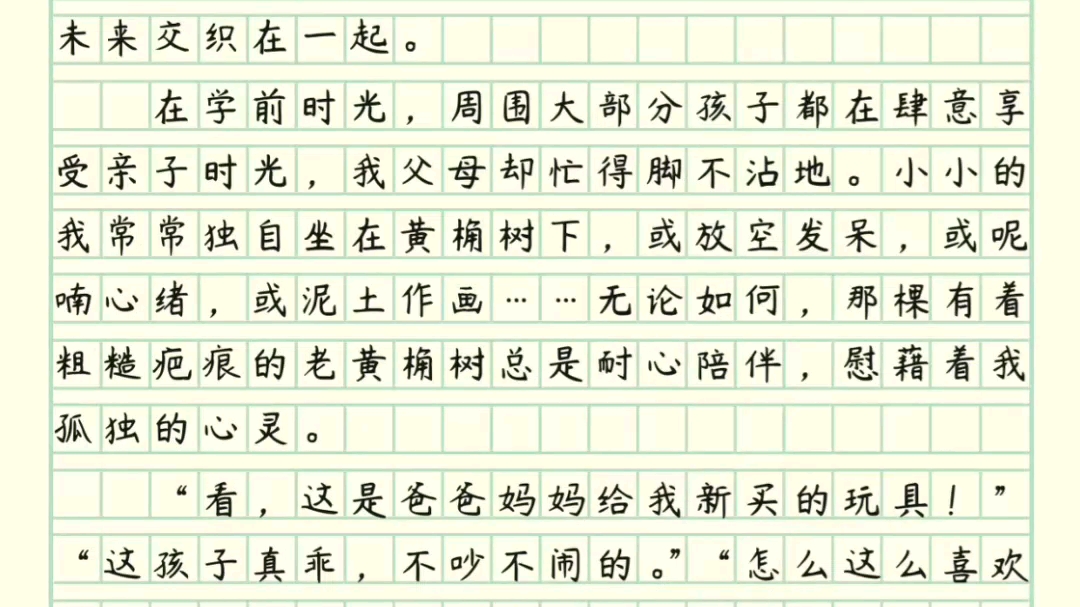 未来交织在一起。
在学前时光，周围大部分孩子都在肆意享
受亲子时光，我父母却忙得脚不沾地。小小的
我常常独自坐在黄桷树下，或放空发呆，或呢
喃心绪，或泥土作画……无论如何，那棵有着
粗糙疤痕的老黄桷树总是耐心陪伴，慰藉着我
孤独的心灵。
“看，这是爸爸妈妈给我新买的玩具！”
“这孩子真乖，不吵不闹的。”“怎么这么喜欢